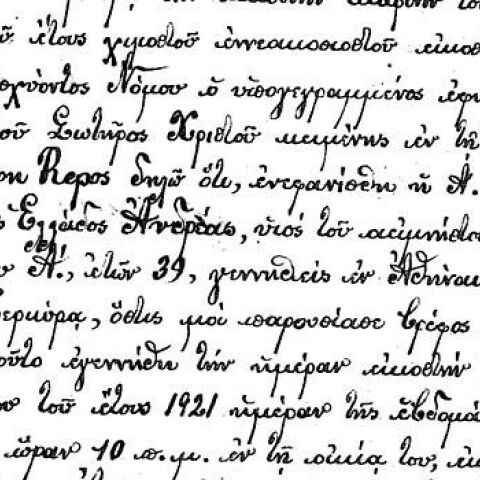 τοῦ ἔτους χιλιοστοῦ ἐννεακοσιοστοῦ εἰκοσ
ἰσχύοντος Νόμου ὁ ὑπογεγραμμένος ἐφη
τοῦ Σωτῆρος Χριστοῦ κειμένης ἐν τῇ
Repos δηλῶ ὅτι, ἐνεφανίσθη ἡ Α.
ς Ἑλλάδος Ἀνδρέας, υἱὸς τοῦ ἀειμνήστο
Α΄., ἐτῶν 39, γεννηθεὶς ἐν Ἀθήναι
Κερκύρᾳ, ὅστις μοὶ παρουσίασε βρέφος
τοῦτο ἐγεννήθη τὴν ἡμέραν εἰκοστὴν
τοῦ ἔτους 1921 ἡμέραν τῆς ἑβδομά
ὥραν 10 π.μ. ἐν τῇ οἰκίᾳ του,